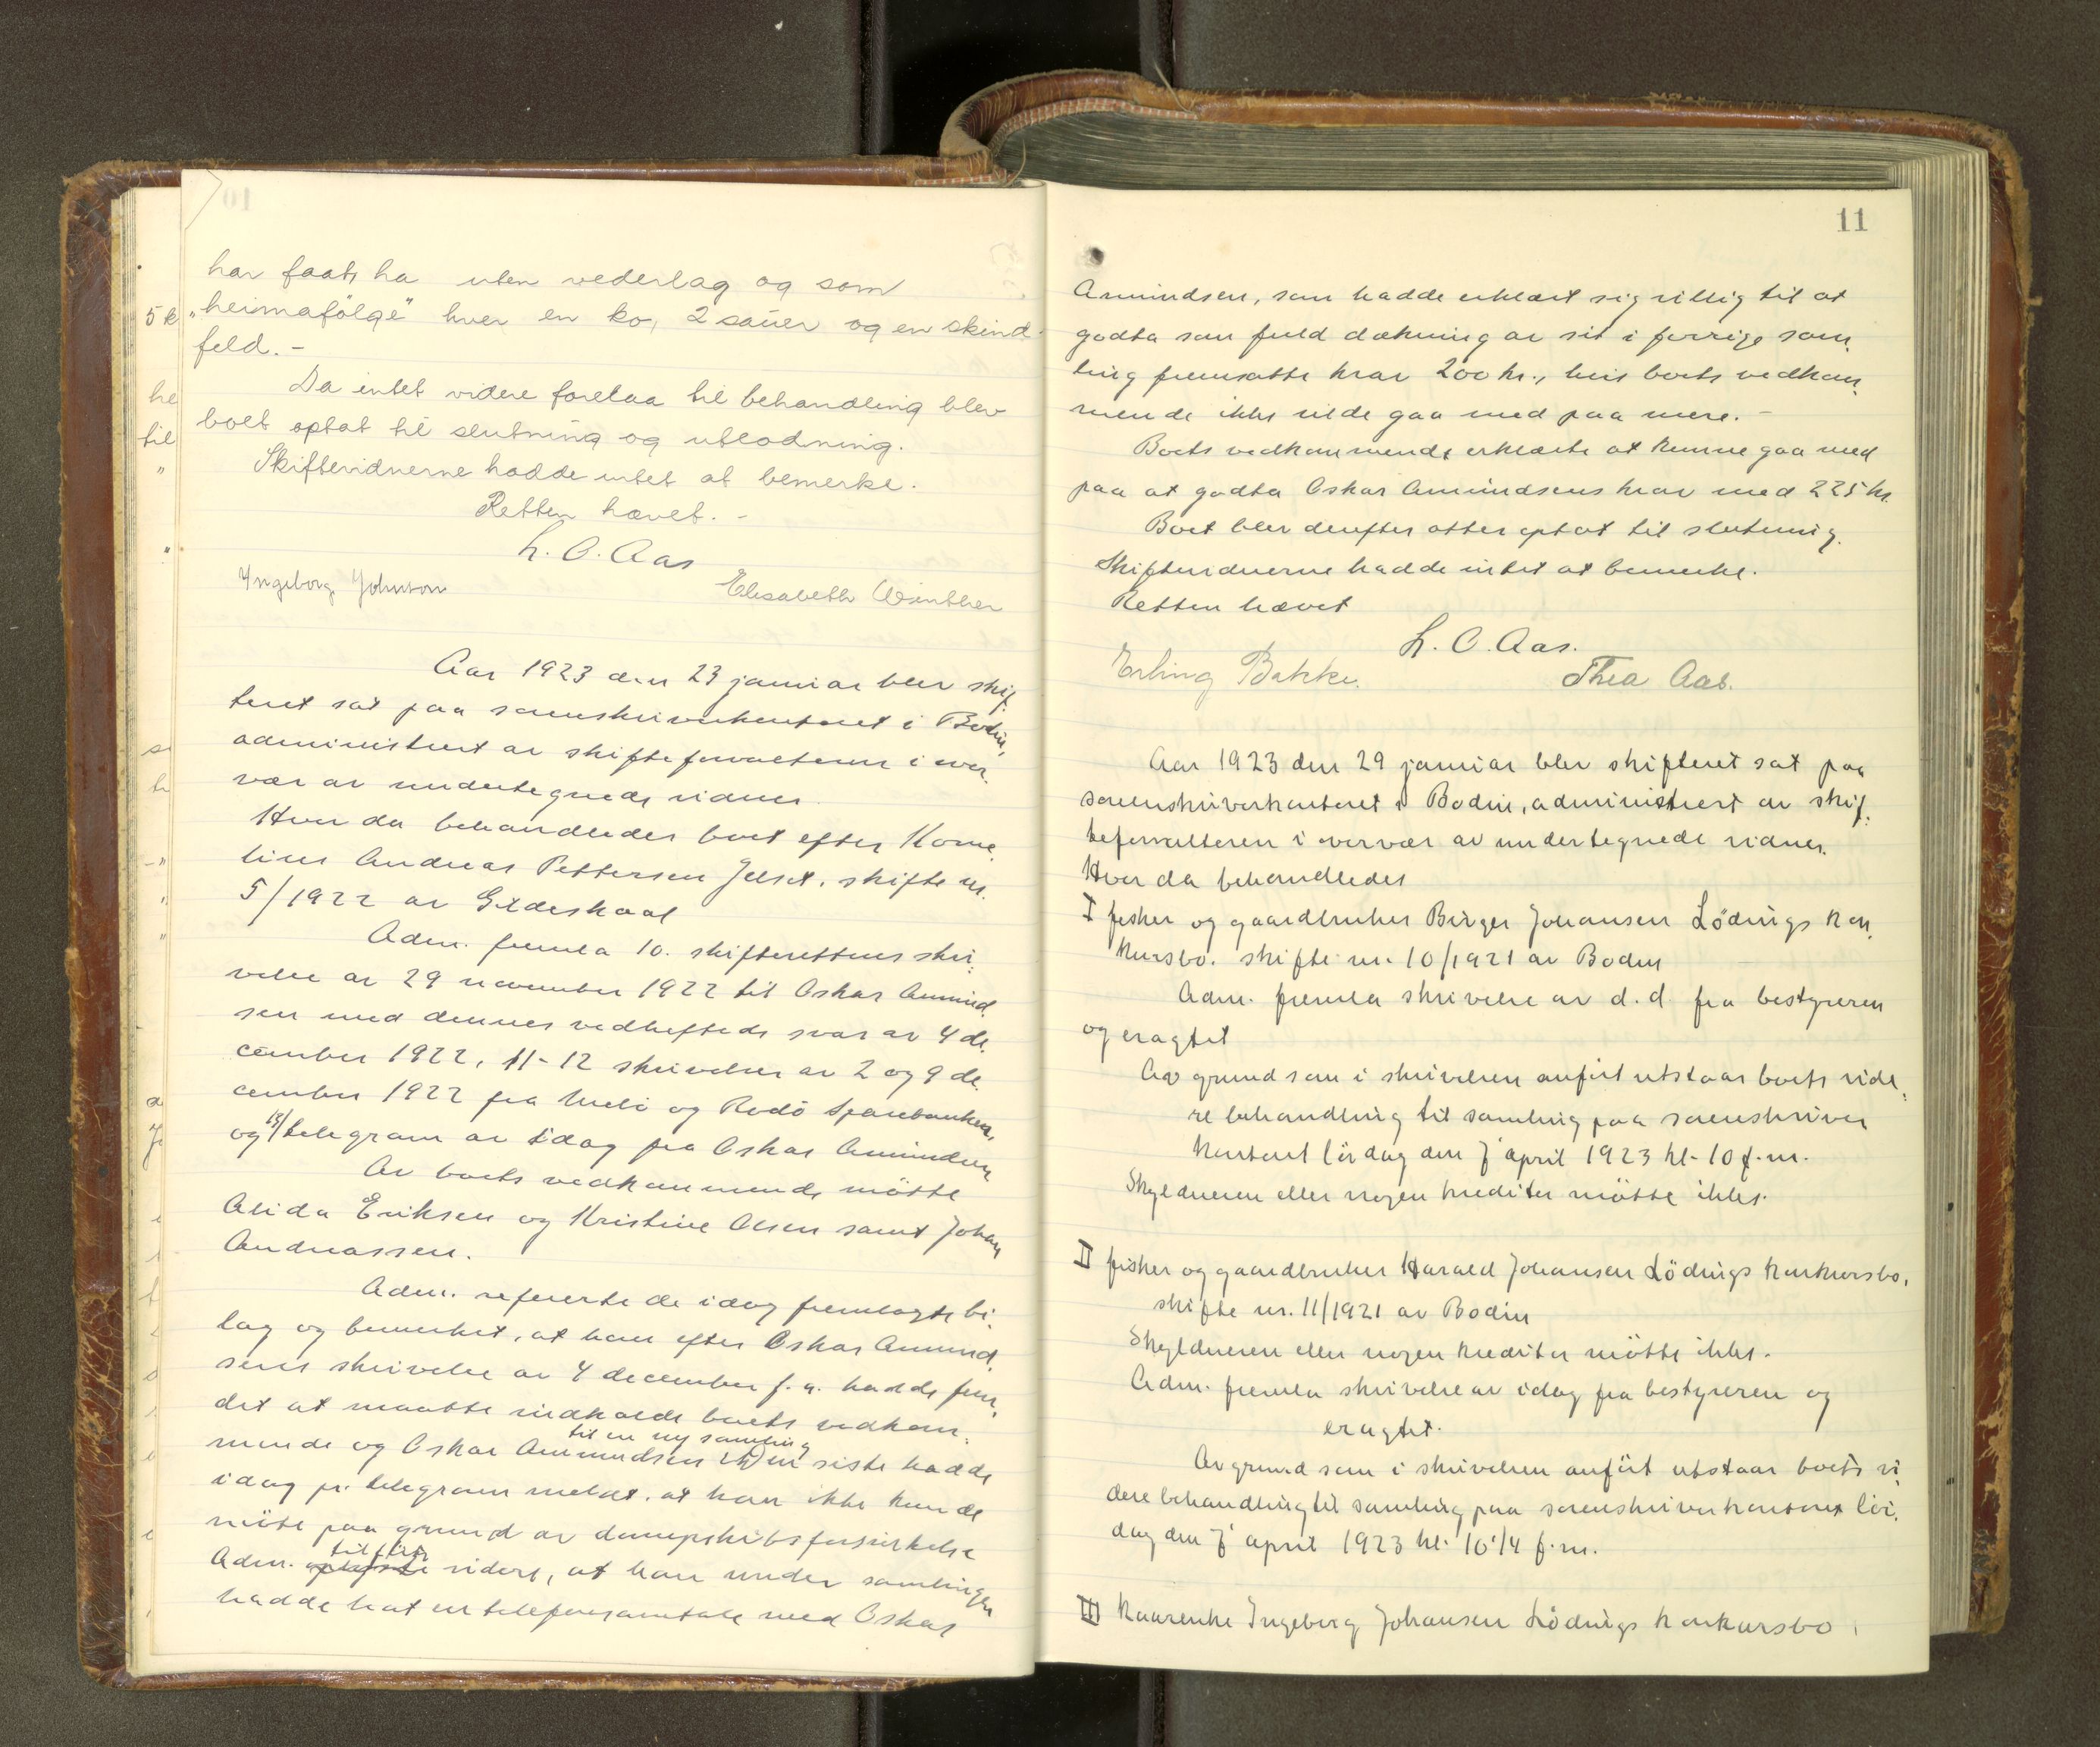 har faat, ha uten vederlag og som
„heimafölge" hver en ko, 2 sauer og en skind-
feld. -
Da intet videre forelaa til behandling blev
boet optat til slutning og utlodning.
Skiftevidnerne hadde intet at bemerke.
Retten hævet. -
L. O. Aas
Ingeborg Johnson Elisabeth Winther
Aar 1923 den 23 januar blev skif-
teret sat paa sorenskriverkontoret i Bodin,
administrert av skifteforvalteren i over-
vær av undertegnede vidner.
Hvor da behandledes boet efter Korne-
lius Andreas Pettersen Jelset, skifte nr.
5/1922 av Gildeskaal
Adm. fremla 10. skifterettens skri-
velse av 29 november 1922 til Oskar Amund-
sen med dennes vedheftede svar av 4 de-
cember 1922, 11-12 skrivelser av 2 og 9 de-
cember 1922 fra Melö og Rödö Sparebanker,
og 13/ telegram av idag fra Oskar Amundsen
Av boets vedkommende mötte
Alida Eriksen og Kristine Olsen samt Johan
Andreassen.
Adm. refererte de idag fremlagte bi-
lag og bemerket, at han efter Oskar Amund-
sens skrivelse av 4 december f. a. hadde fun-
det at maatte indkalde boets vedkom-
mende og Oskar Ammundsen til en ny samling Den siste hadde
idag pr. telegram meldt, at han ikke kunde
möte paa grund av dampskibsforsinkelse
Adm. oplyste tilföide videre, at han under samlingen
hadde hat en telefonsamtale med Oskar
11
Amundsen, som hadde erklært sig villig til at
godta som fuld dækning av sit i forrige sam-
ling fremsatte krav 200 kr., hvis boets vedkom-
mende ikke vilde gaa med paa mere. -
Boets vedkommende erklærte at kunne gaa med
paa at godta Oskar Amundsens krav med 225 kr.
Boet blev derefter atter optat til slutning.
Skiftevidnerne hadde intet at bemerke.
Retten hævet
L. O. Aas.
Erling Bakke. Thea Aas.
Aar 1923 den 29 januar blev skifteret sat paa
sorenskriverkontoret i Bodin, administrert av skif-
teforvalteren i overvær av undertegnede vidner.
Hvor da behandledes
I fisker og gaardbruker Birger Johansen Lödings kon-
kursbo. skifte nr. 10/1921 av Bodin
Adm. fremla skrivelse av d. d. fra bestyreren
og eragtet
Av grund som i skrivelsen anfört utstaar boets vide-
re behandling til samling paa sorenskriver
kontoret lördag den 7 april 1923 kl. 10 f. m.
Skyldneren eller nogen kreditor mötte ikke.
II fisker og gaardbruker Harald Johansen Lödings konkursbo,
skifte nr. 11/1921 av Bodin
Skyldneren eller nogen kreditor mötte ikke.
Adm. fremla skrivelse av idag fra bestyreren og
eragtet.
Av grund som i skrivelsen anfört utstaar boets vi-
dere behandling til samling paa sorenskriverkontoret lör-
dag den 7 april 1923 kl. 10 1/4 f. m.
III Kaarenke Ingeborg Johansen Lödings konkursbo,